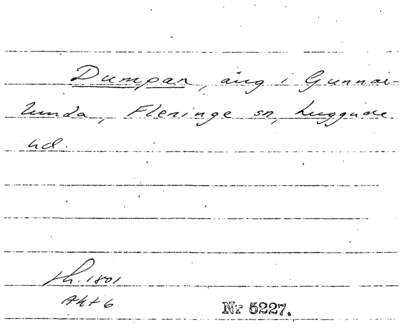 Dumpan, äng i Gunnar-
lunda, Fleninge sn, Luggude
hd.
Lh. 1801
Akt 6
Nr 5227.